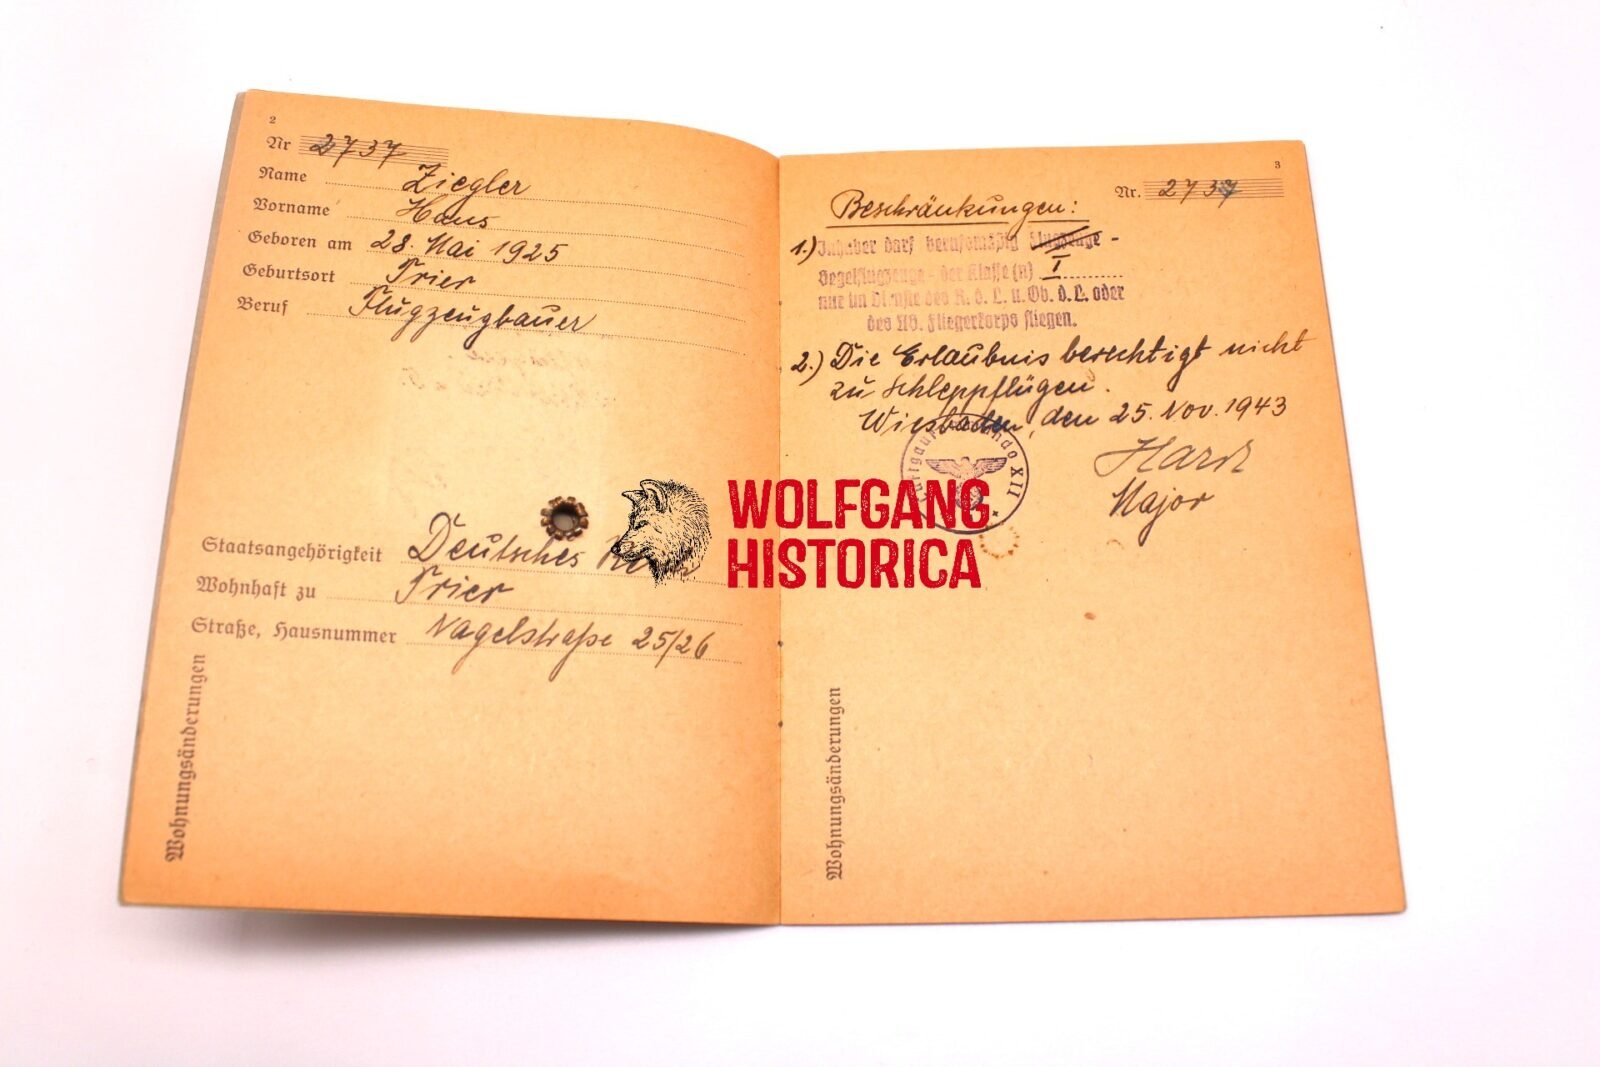 2
Nr 2737
Name Ziegler
Vorname Hans
Geboren am 28. Mai 1925
Geburtsort Trier
Beruf Flugzeugbauer
Staatsangehörigkeit Deutsches
Wohnhaft zu Trier
Straße, Hausnummer Nagelstraße 25/26
Wohnungsänderungen
3
Nr. 2737
Beschränkungen:
1.) Inhaber darf berufsmäßig Flugzeuge -
Segelflugzeuge - der Klasse(n) I
nur im Dienste des R. d. L. u. Ob. d. L. oder
des NS. Fliegerkorps fliegen.
2.) Die Erlaubnis berechtigt nicht
zu Schleppflügen.
Wiesbaden, den 25. Nov. 1943
Major
XII
Wohnungsänderungen
WOLFGANG
HISTORICA